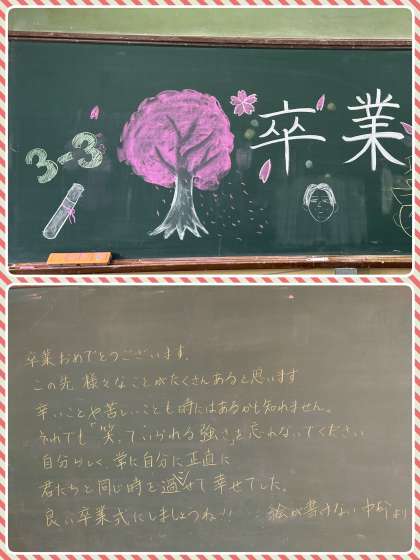 3-3
卒業
卒業おめでとうございます。
この先、様々なことがたくさんあると思います
辛いことや苦しいことも時にはあるかも知れません。
それでも「笑っていられる強さ」を忘れないでください
自分らしく、常に自分に正直に
君たちと同じ時を過せて幸せでした。
良い卒業式にしましょうね!!
絵が書けない 中 より